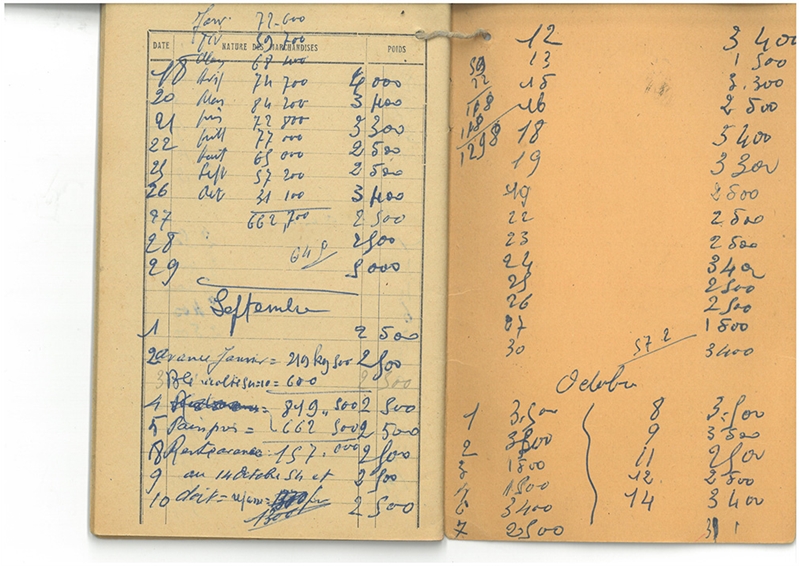 Janv. 72.600
Fév 59 700
DATE NATURE DES MARCHANDISES POIDS
Mars 68 400
18 Avril 74 700 4 000
20 Mai 84 200 3 400
21 juin 72 800 3 300
22 juill 77 000 2 500
Août 65 000
25 Sept 57 200 2 500
26 Oct 31 100 3 400
27 662,700 2 500
28 2 500
649
29 5 000
Septembre
1 2 500
2 avance Janvier = 219 kg 500 2 500
3 Blé = 600 2 500
4 = 819,500 2 500
5 Pain pris = 662 500 2 500
8 Reste avance 157.000 2 500
9 au 14 Octobre 54 et 2 500
10 doit = 2 500
1300
12 3 400
13 1 500
59
15 3.300
22
16 2 500
118
18 3 400
118
1298
19 3 300
19 2 500
22 2 500
23 2 500
24 3 400
25 2 500
26 2 500
27 1 500
572
30 3400
Octobre
1 3.500 8 3.500
2 3500 9 3 500
3 1500 11 2 500
1500 12. 2 500
6 3400 14 3 400
7 2500